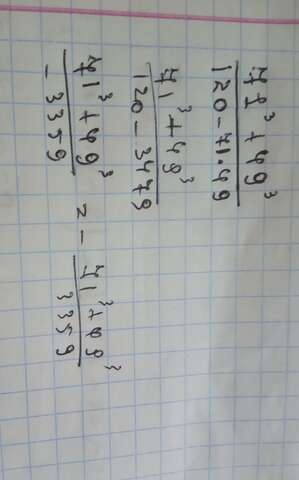 71³ + 49³
120 - 71 · 49
71³ + 49³
120 - 3479
71³ + 49³ = - 71³ + 49³
- 3359 3359